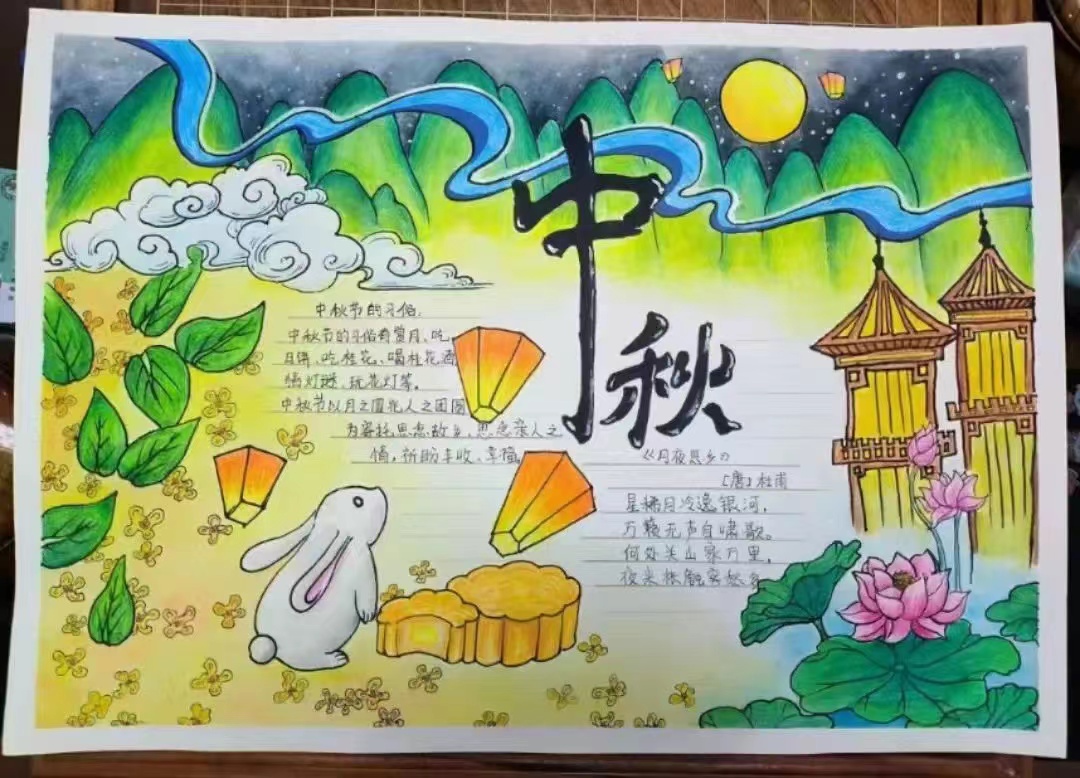 中秋
中秋节的习俗.
中秋节的习俗有赏月、吃
月饼、吃桂花、喝桂花酒
猜灯谜、玩花灯等。
中秋节以月之圆兆人之团圆
为寄托思念故乡、思念亲人之
情,祈盼丰收、幸福
《月夜思乡》
[唐]杜甫
星稀月冷逸银河,
万籁无声自啸歌。
何处关山家万里,
夜来枨触客愁多